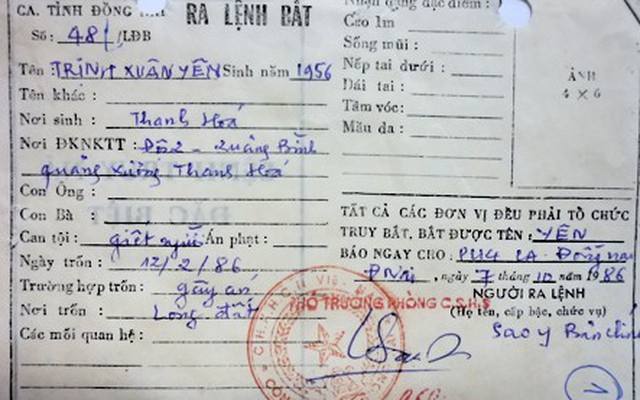 CA. TỈNH ĐỒNG
RA LỆNH BẮT
Số: 48/LĐB
Tên: TRỊNH XUÂN YÊN Sinh năm 1956
Tên khác:
Nơi sinh: Thanh Hoá
Nơi ĐKNKTT: Đội 2 - Quảng Bình
Quảng Xương Thanh Hoá
Con Ông:
Con Bà:
Can tội: giết người Án phạt:
Ngày trốn: 12/2/86
Trường hợp trốn: gây án
Nơi trốn: Long đất
Các mối quan hệ:
Nhận dạng đặc điểm:
Cao 1m
Sống mũi:
Nếp tai dưới:
Dái tai:
Tầm vóc:
Màu da:
ẢNH
4 x 6
TẤT CẢ CÁC ĐƠN VỊ ĐỀU PHẢI TỔ CHỨC
TRUY BẮT, BẮT ĐƯỢC TÊN: YÊN
BÁO NGAY CHO: PC14 CA - Đồng nai
ĐNai, ngày 7 tháng 10 năm 1986
PHÓ TRƯỞNG PHÒNG C.S.H.S
NGƯỜI RA LỆNH
(Họ tên, cấp bậc, chức vụ)
Sao y Bản chính